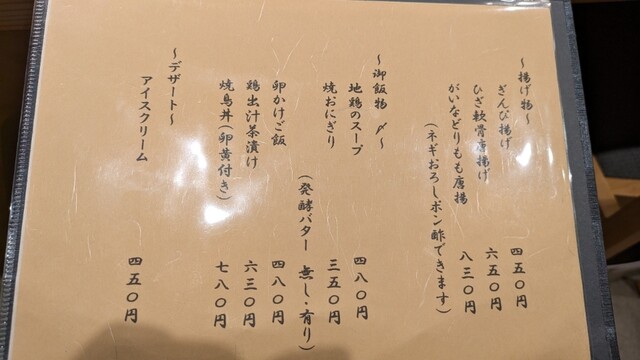 〜揚げ物〜
ぎんぴ揚げ 四五〇円
ひざ軟骨唐揚げ 六五〇円
がいなどりもも唐揚 八三〇円
(ネギおろしポン酢できます)
〜御飯物 〆〜
地鶏のスープ 四八〇円
焼おにぎり 三五〇円
(発酵バター 無し・有り)
卵かけご飯 四八〇円
鶏出汁茶漬け 六三〇円
焼鳥丼(卵黄付き) 七八〇円
〜デザート〜
アイスクリーム 四五〇円